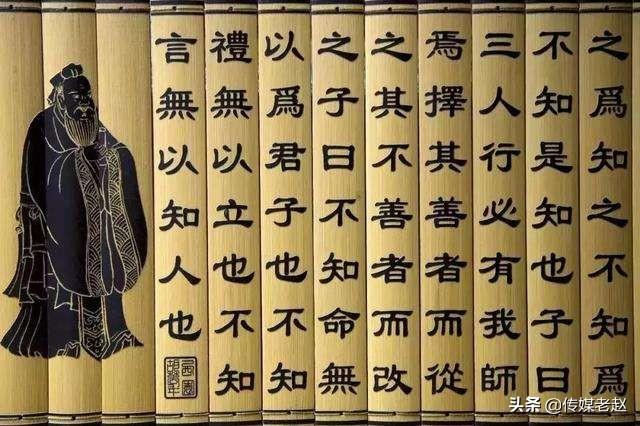 之爲知之不知爲
不知是知也子曰
三人行必有我師
焉擇其善者而從
之其不善者而改
之子曰不知命無
以爲君子也不知
禮無以立也不知
言無以知人也
头条 @传媒老赵